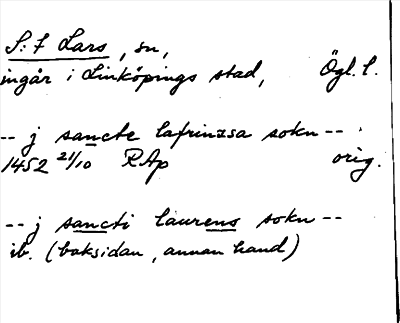 S:t Lars, sn,
ingår i Linköpings stad, Ögl. l.
-- j sancte lafrinzsa sokn --
1452 21/10 RAp orig.
-- j sancti laurens sokn --
ib. (baksidan, annan hand)